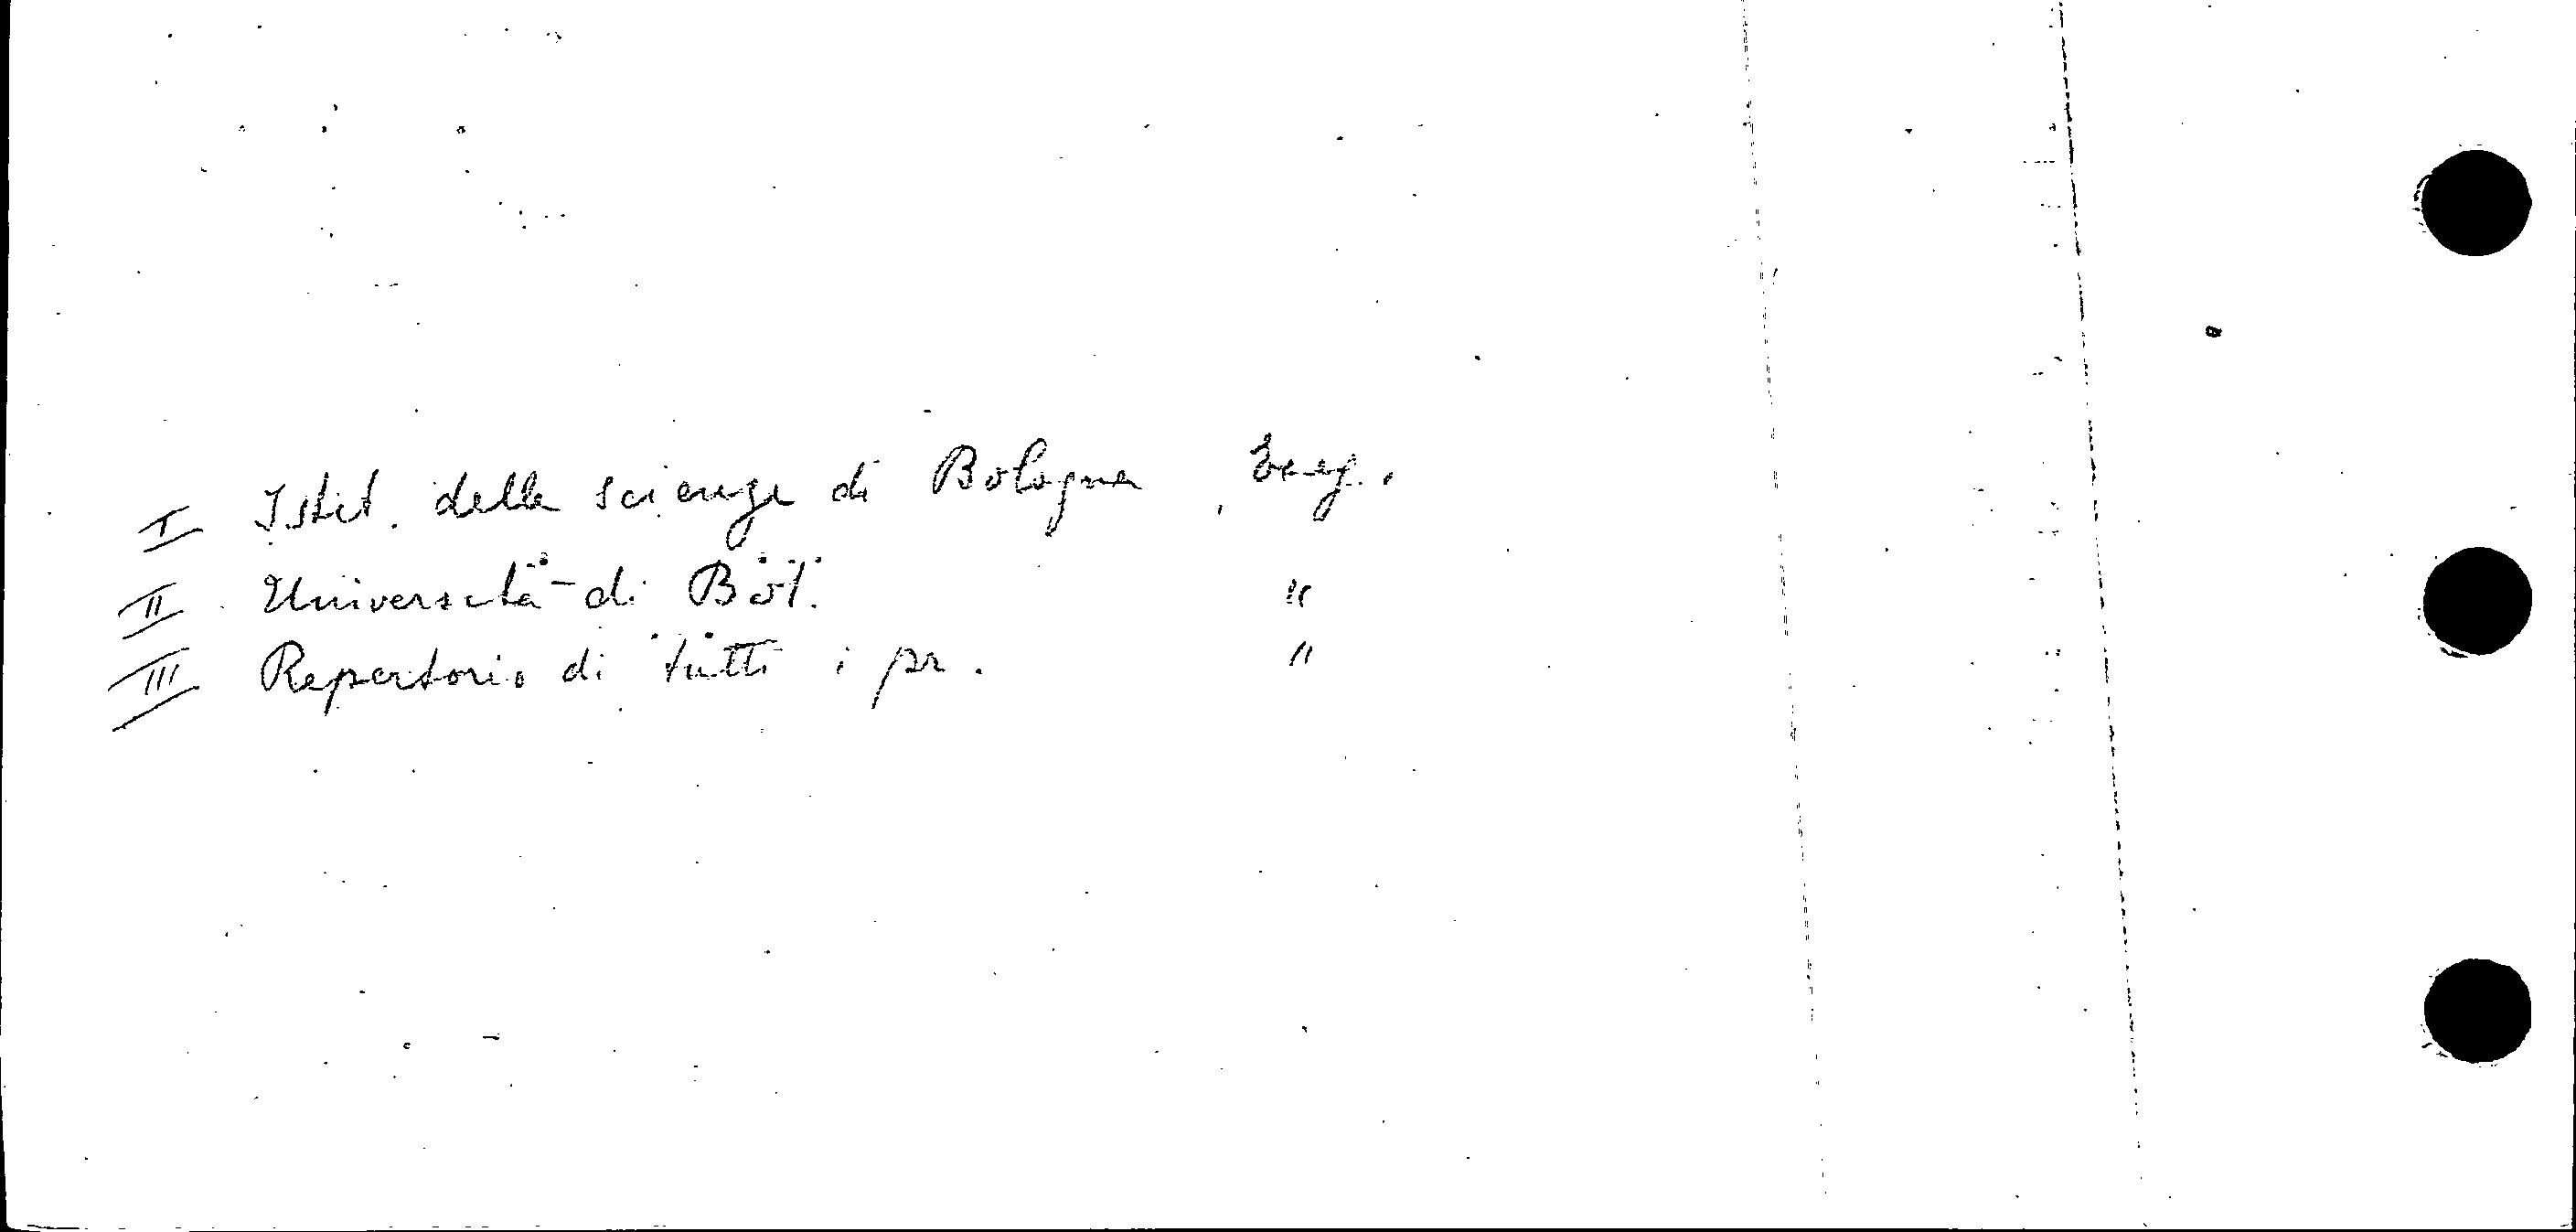 I Istit. delle scienze di Bologna
II Università di Bol. "
III Repertorio di tutti i pr. "